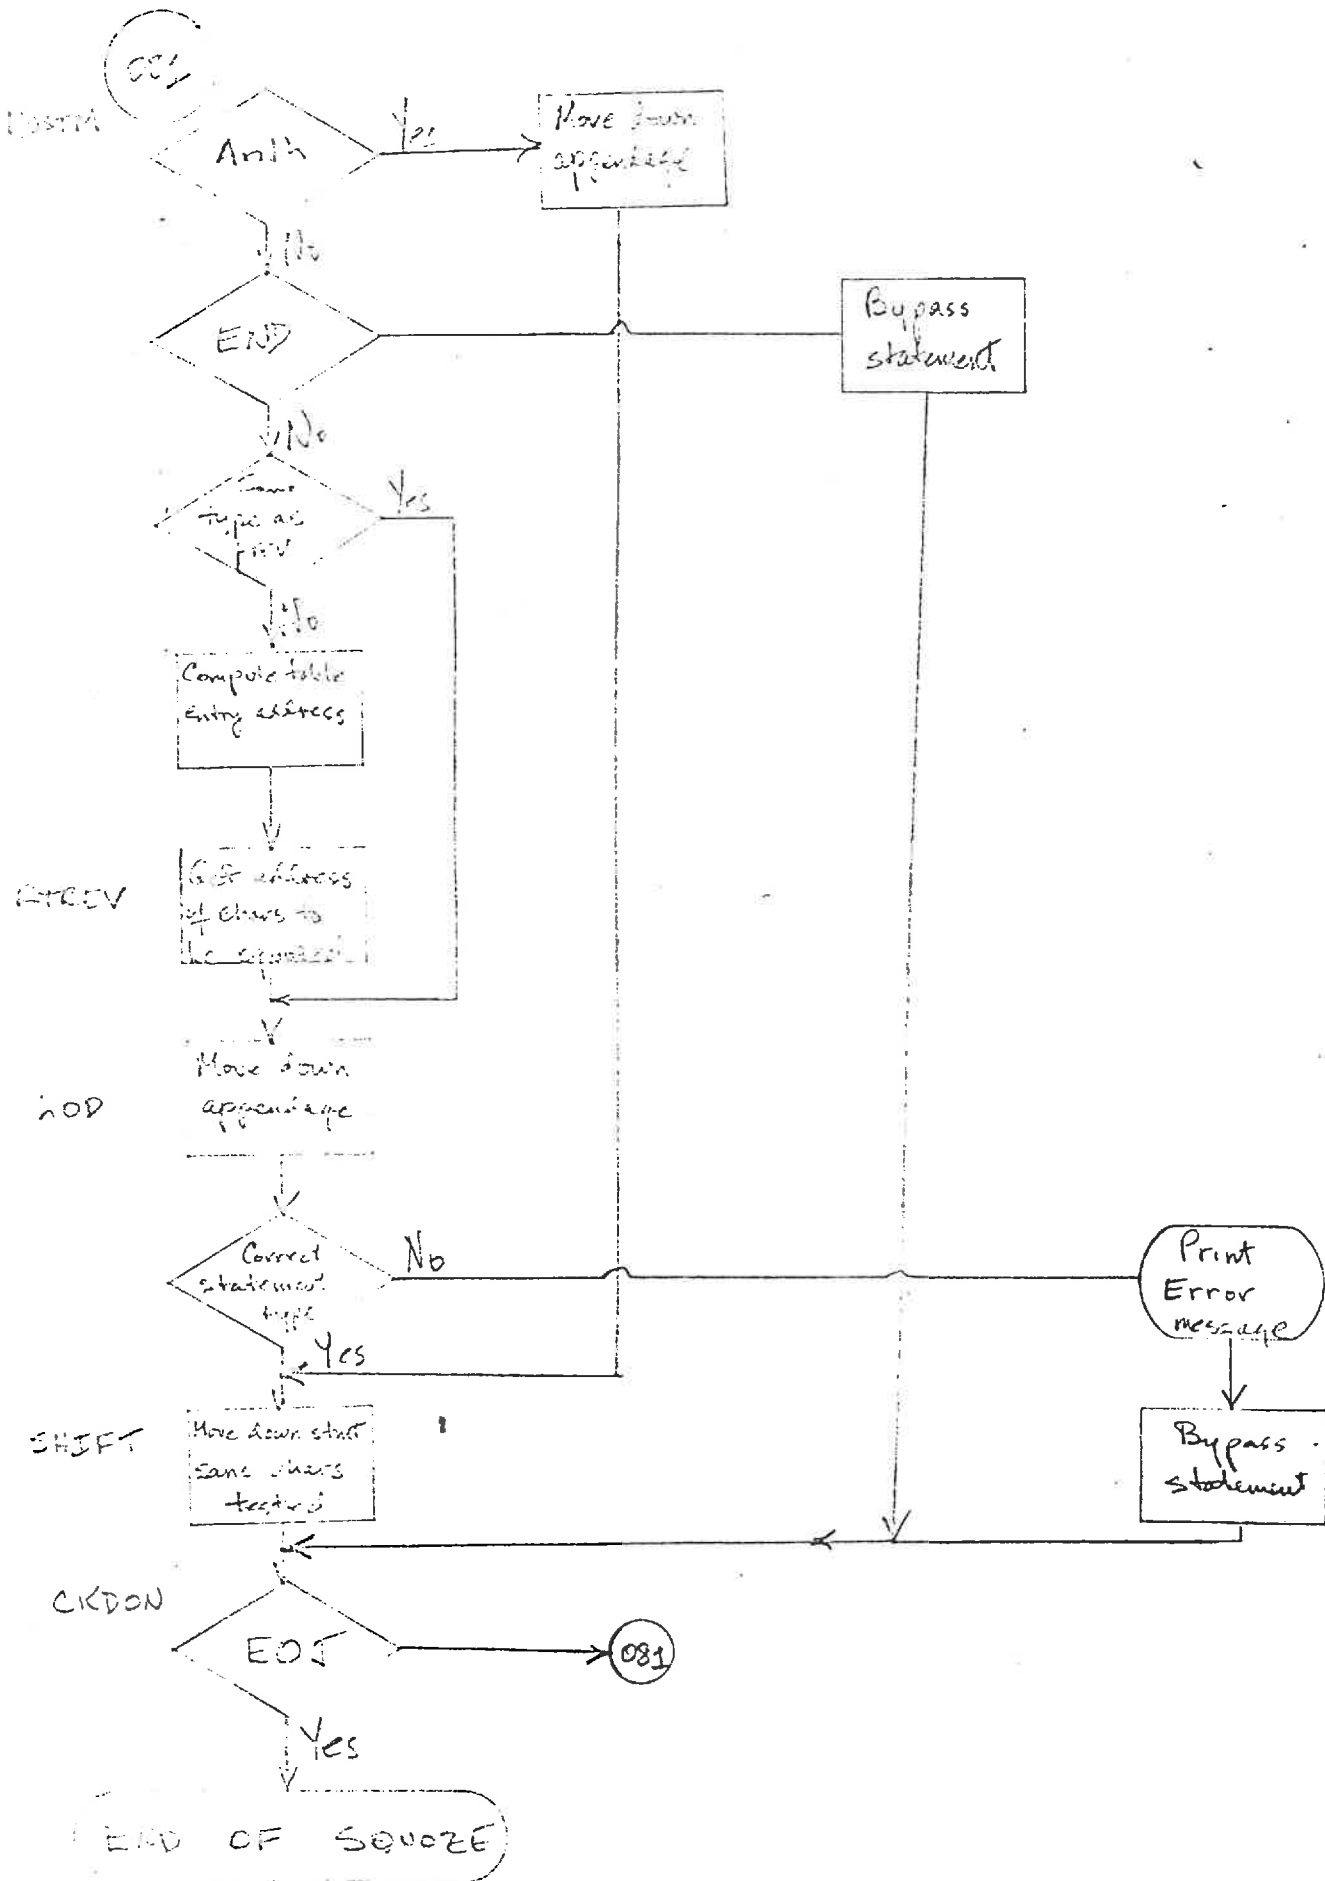 081
Arith
Yes
Move down
appendage
No
END
Bypass
statement
No
Same
type as
prev
Yes
No
Compute table
entry address
RTREV
Get address
of chars to
be
MOD
Move down
appendage
Correct
statement
type
No
Print
Error
message
Yes
SHIFT
Move down stmt
sans chars
tested
Bypass
statement
CKDON
EOJ
081
Yes
END OF SQUOZE